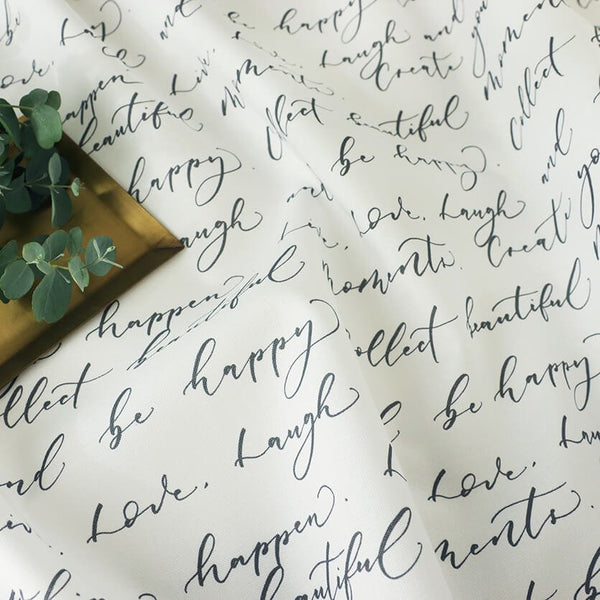 happy
Laugh and you
Create
Moments
Collect
happen
beautiful
Live.
Love.
Collect beautiful
be happy
and
happy
Laugh
Love. Laugh
Create
Moments.
happen
beautiful
Collect beautiful
be happy
be happy
Collect
and
Laugh
Love.
Love.
happen.
beautiful